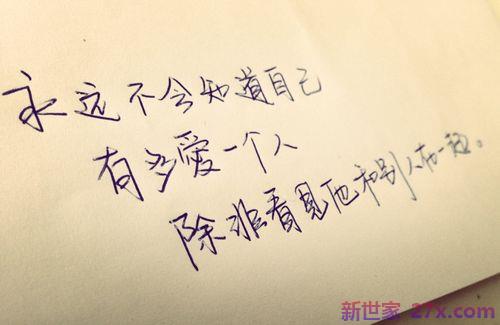 永远不会知道自己
有多爱一个人
除非看见他和别人在一起。
新世家 27x.com